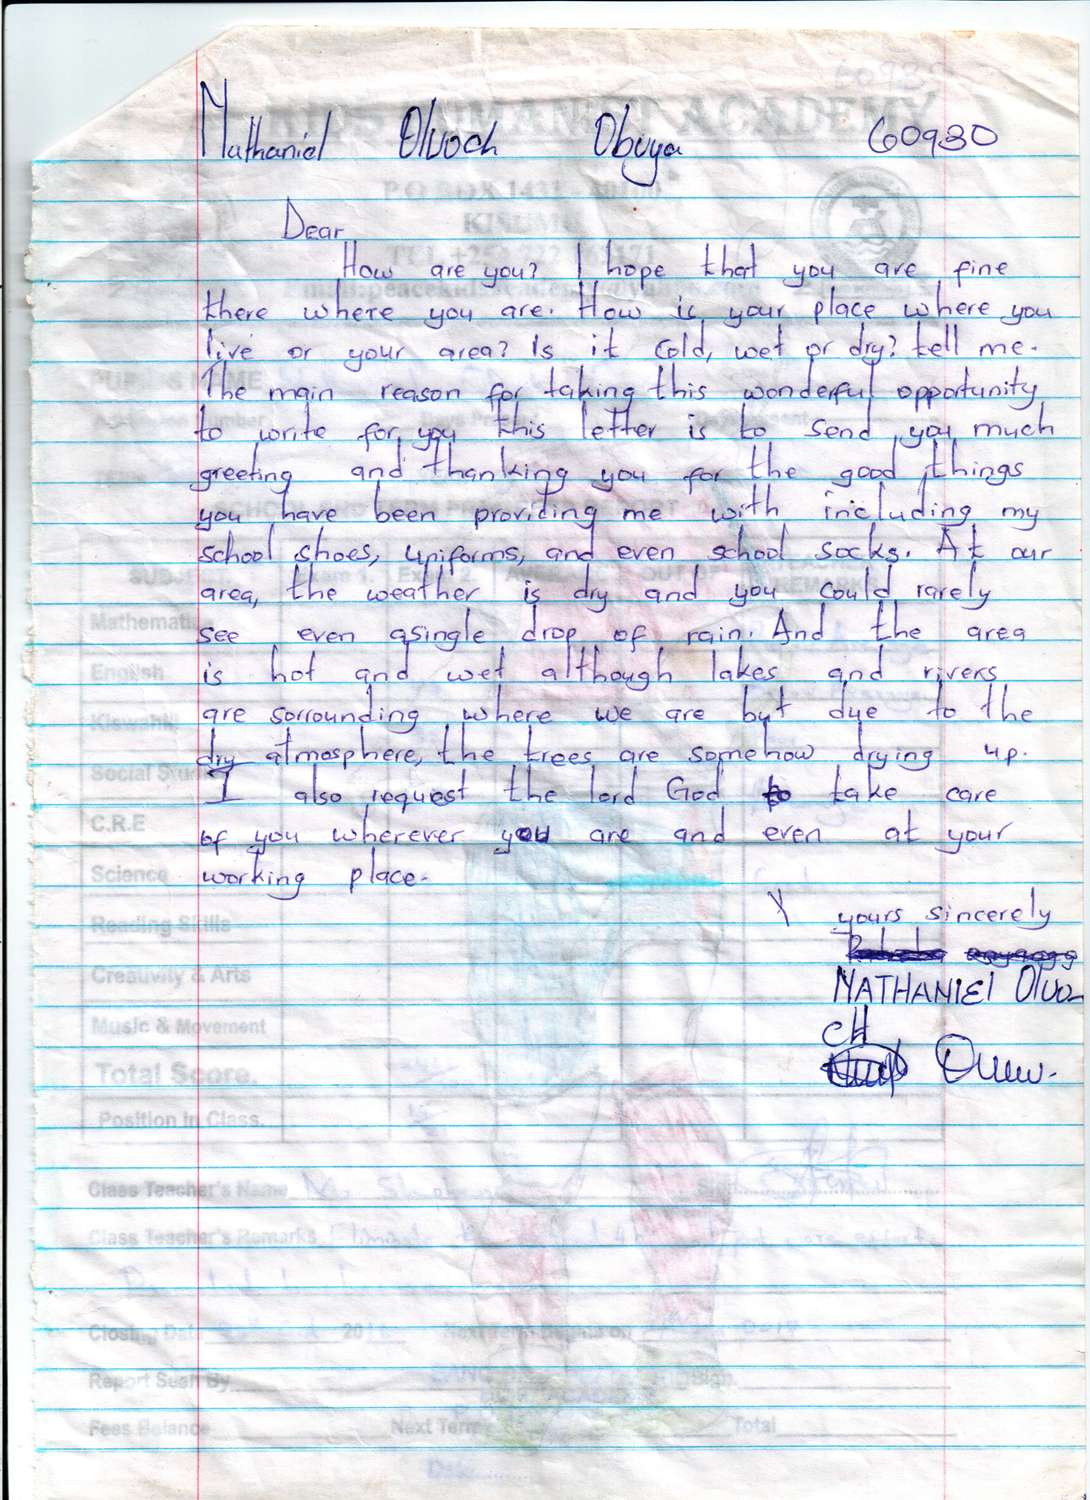 Nathaniel Oluoch Obuya 60930
Dear
How are you? I hope that you are fine
there where you are. How is your place where you
live or your area? Is it cold, wet or dry? tell me.
The main reason for taking this wonderful opportunity
to write for you this letter is to send you much
greeting and thanking you for the good things
you have been providing me with including my
school shoes, uniforms, and even school socks. At our
area, the weather is dry and you could rarely
see even asingle drop of rain. And the area
is hot and wet although lakes and rivers
are sorrounding where we are but due to the
dry atmosphere, the trees are somehow drying up.
I also request the lord God to take care
of you wherever you are and even at your
working place.
yours sincerely
NATHANIEl Oluo
CH
ACADEMY
P.O BOX
KISUMU
Mathemati
English
Kiswahili
Social Studies
C.R.E
Science
Reading Skills
Creativity & Arts
Music & Movement
Total Score.
Position in Class.
Class Teacher's Name
Class Teacher's Remarks
Closing Date
Report Seen By
Fees Balance Next Term Total
Date